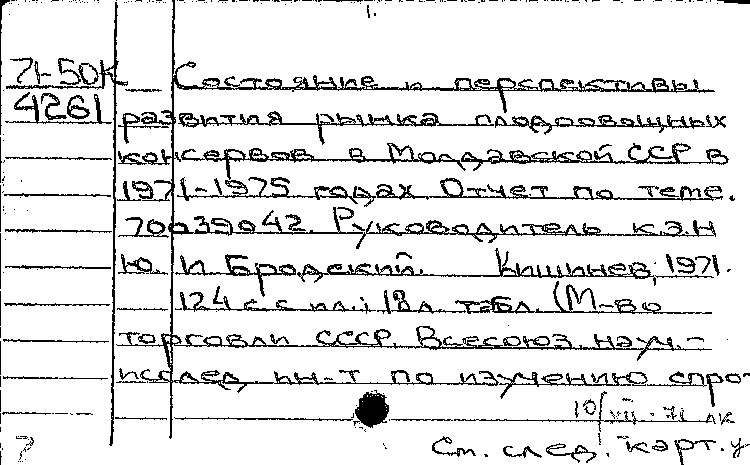 1.
71-50К Состояние и перспективы
4261 развития рынка плодоовощных
консервов в Молдавской ССР в
1971-1975 годах. Отчет по теме.
70039042. Руководитель к.э.н
Ю. И Бродский. Кишинев, 1971.
124 с. с ил.; 18 л. табл. (М-во
торговли СССР. Всесоюз. науч.-
исслед. ин-т по изучению спро
10/VII-71 ЛК
См. след. карт.